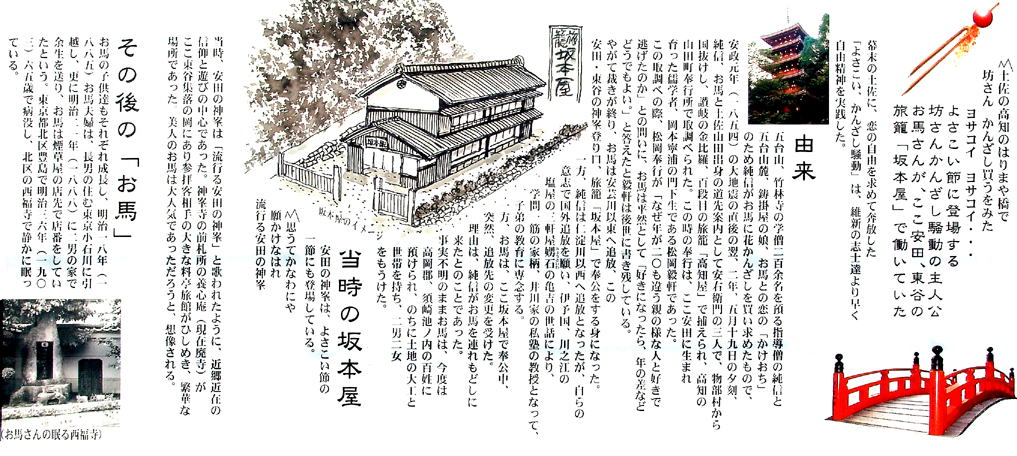 〽土佐の高知のはりまや橋で
坊さん かんざし買うをみた
ヨサコイ ヨサコイ・・・
よさこい節に登場する
坊さんかんざし騒動の主人公
お馬さんが、ここ安田、東谷の
旅籠「坂本屋」で働いていた
幕末の土佐に、恋の自由を求めて奔放した
「よさこい、かんざし騒動」は、維新の志士達より早く
自由精神を実践した。
由来
五台山、竹林寺の学僧二百余名を預る指導僧の純信と
五台山麓、鋳掛屋の娘、お馬との恋の「かけおち」
のため純信がお馬に花かんざしを買い求めたもので、
安政元年（一八五四）の大地震の直後の翌、二年、五月十九日の夕刻、
純信、お馬と土佐山田出身の道先案内として安右衛門の三人で、物部村から
国抜けし、讃岐の金比羅、百段目の旅籠「高知屋」で捕えられ、高知の
山田町奉行所で取調べられた。この時の奉行は、ここ安田に生まれ
育った儒学者、岡本寧浦の門下生である松岡毅軒であった。
この取調べの際、松岡奉行が「なぜ年が二〇も違う親の様な人と好きで
逃げたのか」との問いに、お馬は平然として「好きになったら、年の差など
どうでもよい」と答えたと毅軒は後世に書き残している。
やがて裁きが終り、お馬は安芸川以東へ追放、この
安田・東谷の神峯登り口、旅籠「坂本屋」で奉公をする身になった。
一方、純信は仁淀川以西へ追放となったが、自らの
意志で国外追放を願い、伊予国、川之江の
塩屋の三軒屋甥石の亀吉の世話により、
学問一筋の家柄、井川家の私塾の教授となって、
子弟の教育に専念する。
一方、お馬は、ここ坂本屋で奉公中、
突然、追放先の変更を受けた。
理由は、純信がお馬を連れもどしに
来たとのことであった。
事実不明のままお馬は、今度は
高岡郡、須崎池ノ内の百姓に
預けられ、のちに土地の大工と
世帯を持ち、二男二女
をもうけた。
旅籠 坂本屋
坂本屋のイメージ
当時の坂本屋
安田の神峯は、よさこい節の
一節にも登場している。
〽思うてかなわにゃ
願かけなはれ
流行る安田の神峯
当時、安田の神峯は「流行る安田の神峯」と歌われたように、近郷近在の
信仰と遊びの中心であった。神峯寺の前札所の養心庵（現在廃寺）が
ここ東谷集落の岡にあり参拝客相手の大きな料亭旅館がひしめき、繁華な
場所であった。美人のお馬は大人気であっただろうと、想像される。
その後の「お馬」
お馬の子供達もそれぞれ成長し、明治一八年（一
八八五）お馬夫婦は、長男の住む東京小石川に引
越し、更に明治二一年（一八八八）に二男の家で
余生を送り、お馬は煙草屋の店先で店番をしてい
たという。東京都北区豊島で明治三六年（一九〇
三）六五歳で病没し、北区の西福寺で静かに眠っ
ている。
（お馬さんの眠る西福寺）